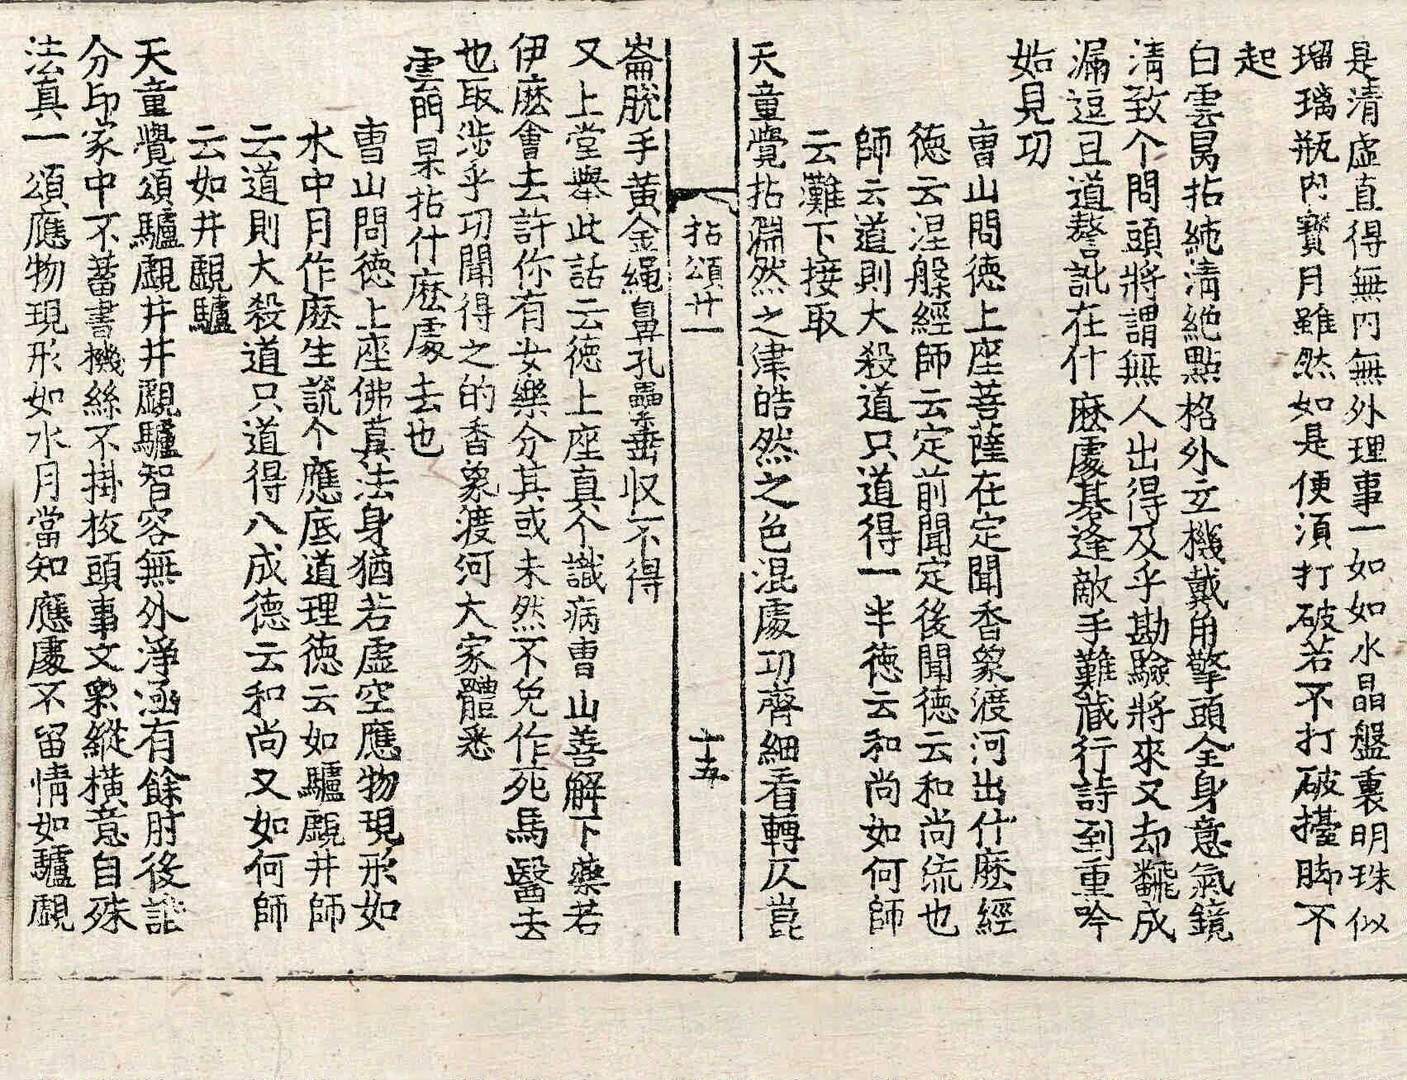 是清虛直得無內無外理事一如如水晶盤裏明珠似
瑠璃瓶內寶月雖然如是便須打破若不打破擡脚不
起
白雲昺拈純淸絶點格外立機戴角擎頭全身意氣鏡
淸致个問頭將謂無人出得及乎勘驗將來又却飜成
漏逗且道誵訛在什麽處碁逢敵手難藏行詩到重吟
始見功
曹山問德上座菩薩在定聞香象渡河出什麽經
德云涅槃經師云定前聞定後聞德云和尚流也
師云道則大殺道只道得一半德云和尚如何師
云灘下接取
天童覺拈淵然之津皓然之色混處功齊細看轉仄崑
拈頌廿一
十五
崙脫手黃金繩鼻孔纍垂收不得
又上堂擧此話云德上座真个識病曹山善解下藥若
伊麽會去許你有女樂分其或未然不免作死馬醫去
也取涉乎切聞得之的香象渡河大家體悉
雲門杲拈什麽處去也
曹山問德上座佛眞法身猶若虛空應物現形如
水中月作麽生說个應底道理德云如驢覰井師
云道則大殺道只道得八成德云和尚又如何師
云如井覰驢
天童覺頌驢覰井井覰驢智容無外淨涵有餘肘後誰
分印家中不蓄書機絲不掛梭頭事文彩縱橫意自殊
法真一頌應物現形如水月當知應處不留情如驢覰